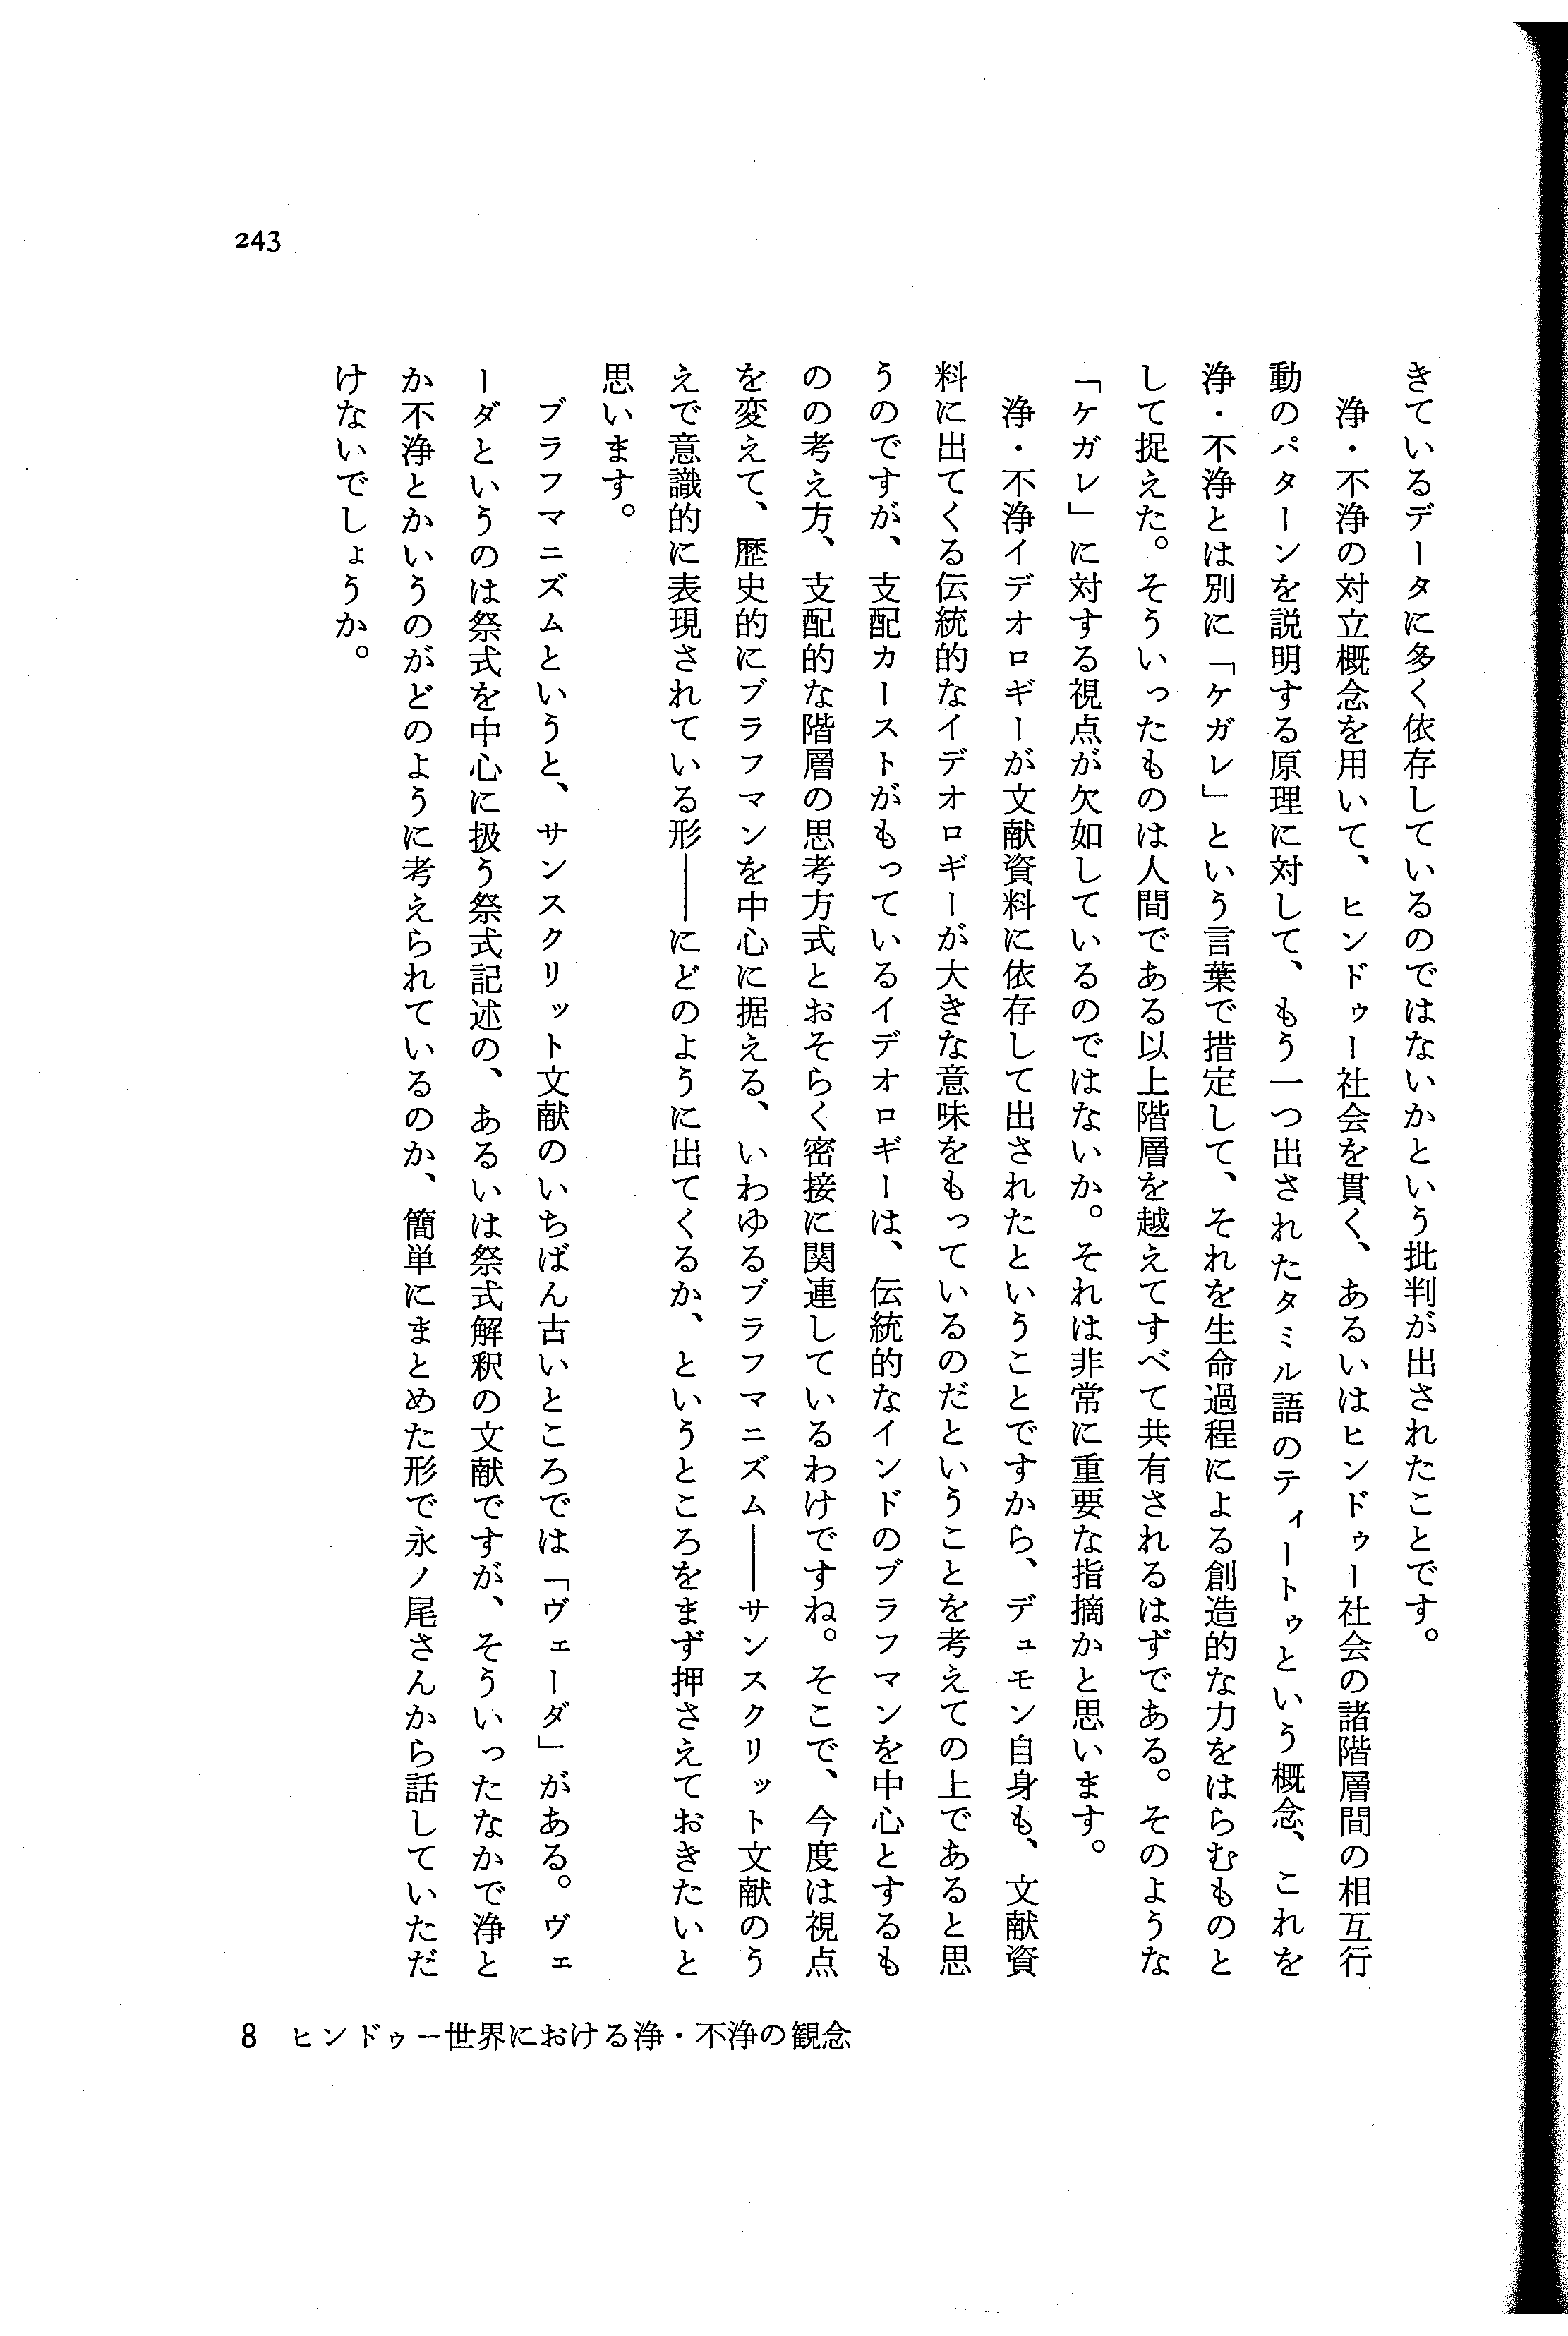 きているデータに多く依存しているのではないかという批判が出されたことです。
　浄・不浄の対立概念を用いて、ヒンドゥー社会を貫く、あるいはヒンドゥー社会の諸階層間の相互行
動のパターンを説明する原理に対して、もう一つ出されたタミル語のティートゥという概念、これを
浄・不浄とは別に「ケガレ」という言葉で措定して、それを生命過程による創造的な力をはらむものと
して捉えた。そういったものは人間である以上階層を越えてすべて共有されるはずである。そのような
「ケガレ」に対する視点が欠如しているのではないか。それは非常に重要な指摘かと思います。
　浄・不浄イデオロギーが文献資料に依存して出されたということですから、デュモン自身も、文献資
料に出てくる伝統的なイデオロギーが大きな意味をもっているのだということを考えての上であると思
うのですが、支配カーストがもっているイデオロギーは、伝統的なインドのブラフマンを中心とするも
のの考え方、支配的な階層の思考方式とおそらく密接に関連しているわけですね。そこで、今度は視点
を変えて、歴史的にブラフマンを中心に据える、いわゆるブラフマニズム――サンスクリット文献のう
えで意識的に表現されている形――にどのように出てくるか、というところをまず押さえておきたいと
思います。
　ブラフマニズムというと、サンスクリット文献のいちばん古いところでは「ヴェーダ」がある。ヴェ
ーダというのは祭式を中心に扱う祭式記述の、あるいは祭式解釈の文献ですが、そういったなかで浄と
か不浄とかいうのがどのように考えられているのか、簡単にまとめた形で永ノ尾さんから話していただ
けないでしょうか。
243
8　ヒンドゥー世界における浄・不浄の観念